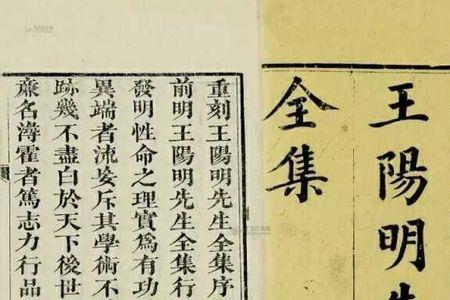 王陽明先
全集
重刻王陽明先生全集序
前明王陽明先生全集行
發明性命之理實爲有功
異端者流妄斥其學術不
跡幾不盡白於天下後世
廉名濤霍者篤志力行品